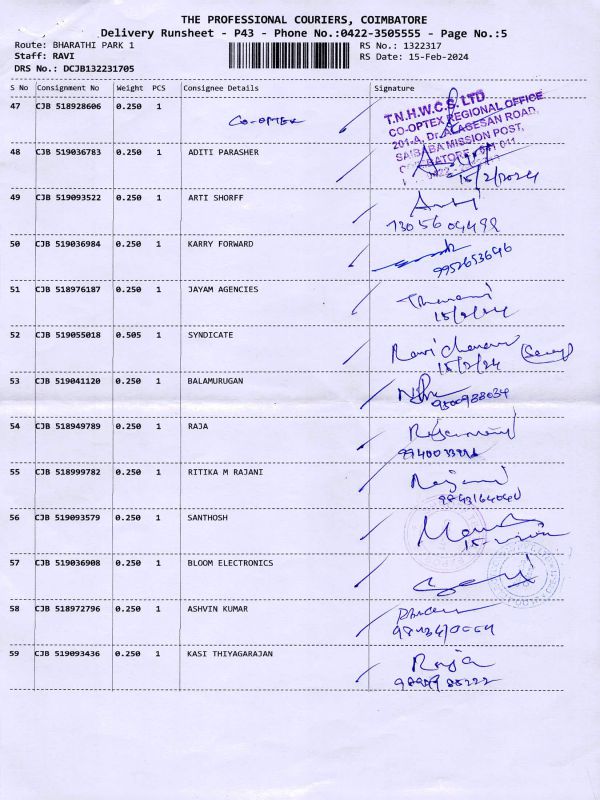 THE PROFESSIONAL COURIERS, COIMBATORE
Delivery Runsheet - P43 - Phone No.:0422-3505555 - Page No.:5
Route: BHARATHI PARK 1 RS No.: 1322317
Staff: RAVI RS Date: 15-Feb-2024
DRS No.: DCJB132231705
S No Consignment No Weight PCS Consignee Details Signature
47 CJB 518928606 0.250 1 CO-OPTEX
T.N.H.W.C.S. LTD
CO-OPTEX REGIONAL OFFICE
201-A, Dr. ALAGESAN ROAD,
SAIBABA MISSION POST,
48 CJB 519036783 0.250 1 ADITI PARASHER
15/2/2024
49 CJB 519093522 0.250 1 ARTI SHORFF
50 CJB 519036984 0.250 1 KARRY FORWARD
9952653646
51 CJB 518976187 0.250 1 JAYAM AGENCIES
15/2/24
52 CJB 519055018 0.505 1 SYNDICATE
15/2/24
53 CJB 519041120 0.250 1 BALAMURUGAN
54 CJB 518949789 0.250 1 RAJA
55 CJB 518999782 0.250 1 RITIKA M RAJANI
Rajani
9843164040
56 CJB 519093579 0.250 1 SANTHOSH
57 CJB 519036908 0.250 1 BLOOM ELECTRONICS
58 CJB 518972796 0.250 1 ASHVIN KUMAR
59 CJB 519093436 0.250 1 KASI THIYAGARAJAN
Raja